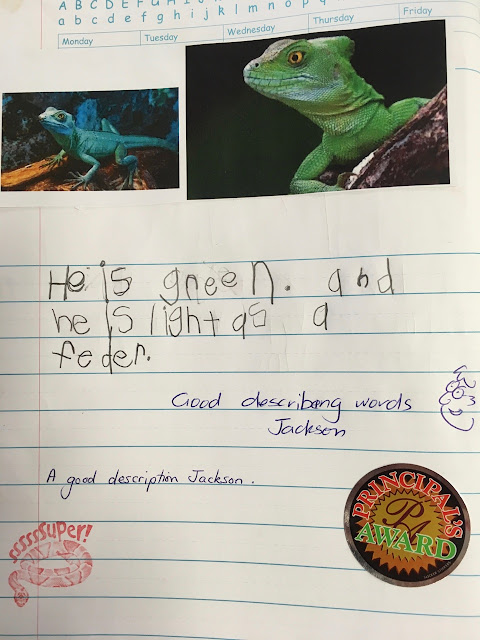 A B C D E F G H I J K L M N O P
a b c d e f g h i j k l m n o p q
Monday Tuesday Wednesday Thursday Friday
He is gneen. and
he is light as a
feder.
Good describeng words
Jackson
A good description Jackson.
sssssSuper!
PRINCIPAL'S
PA
AWARD